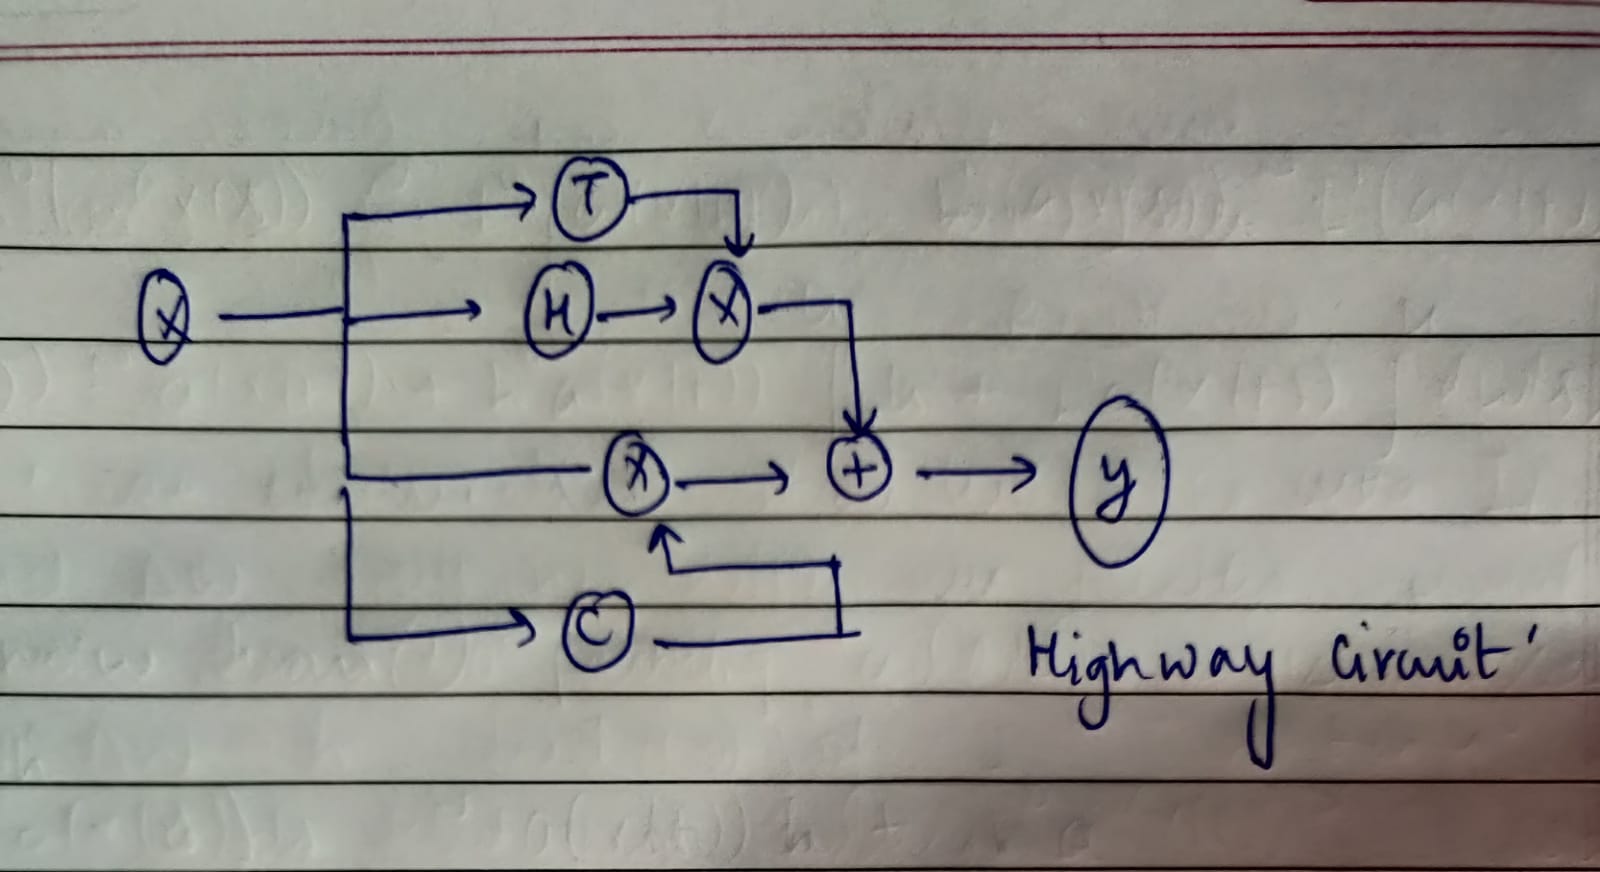 T
X H X
X + y
C
Highway Circuit'